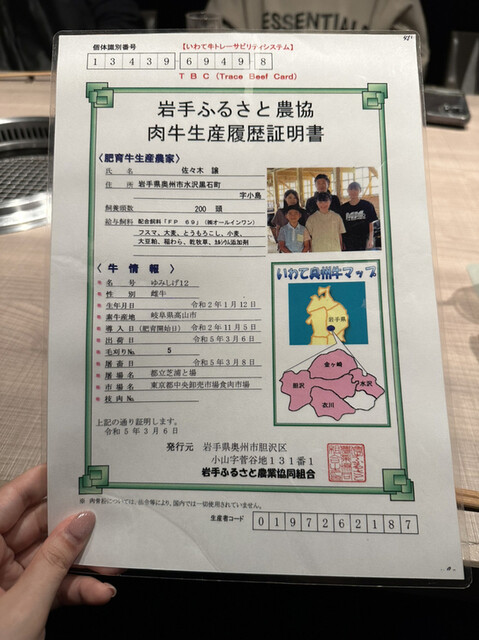 ESSENTIALS
個体識別番号 【いわて牛トレーサビリティシステム】
13439-6949-8
TBC (Trace Beef Card)
岩手ふるさと農協
肉牛生産履歴証明書
〈肥育牛生産農家〉
氏 名 佐々木 譲
住 所 岩手県奥州市水沢黒石町
字小島
飼養頭数 200 頭
給与飼料 配合飼料「FP 69」(㈱オールインワン)
フスマ、大麦、とうもろこし、小麦、
大豆粕、稲わら、乾牧草、カルシウム添加剤
〈牛 情 報〉
* 名 号 ゆみしげ12
* 性 別 雌牛
* 生年月日 令和2年1月12日
* 素牛産地 岐阜県高山市
* 導入日(肥育開始日) 令和2年11月5日
* 出荷日 令和5年3月6日
* 毛刈りNo. 5
* 屠畜日 令和5年3月8日
* 屠場名 都立芝浦と場
* 市場名 東京都中央卸売市場食肉市場
* 枝肉No.
いわて奥州牛マップ
岩手県
金ヶ崎
胆沢
水沢
衣川
上記の通り証明します。
令和5年3月6日
発行元 岩手県奥州市胆沢区
小山字菅谷地131番1
岩手ふるさと農業協同組合
※ 肉骨粉については、法令等により、国内では一切使用されていません。
生産者コード 0197262187